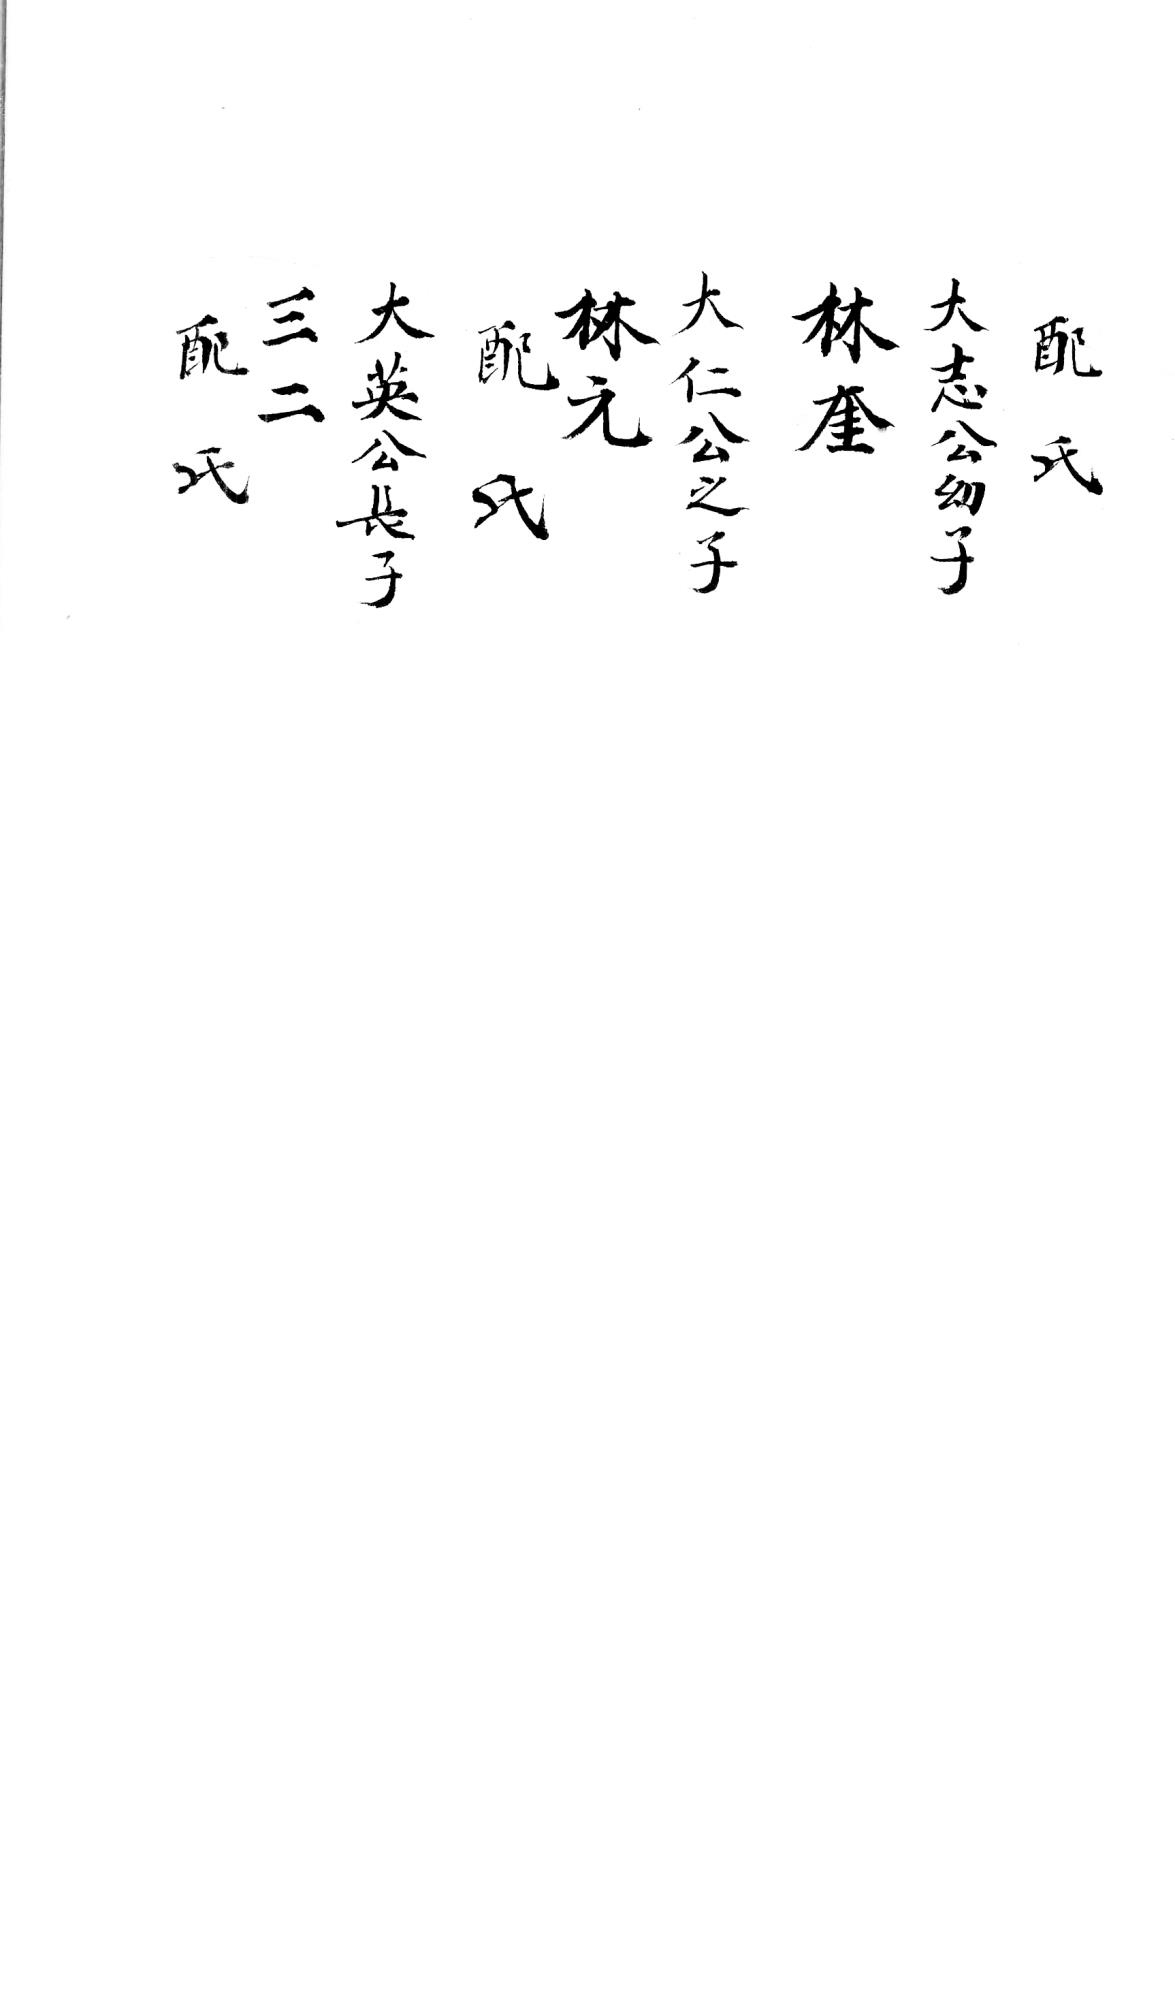 配氏
大志公幼子
林奎
大仁公之子
林元
配氏
大英公長子
三二
配氏